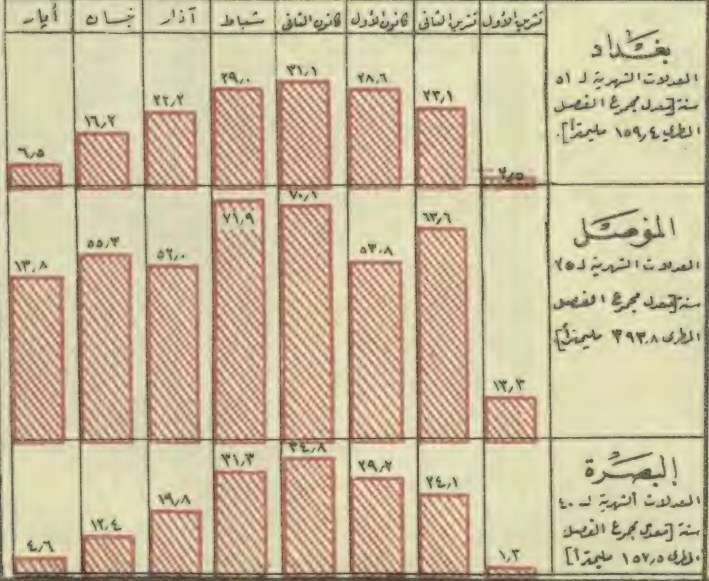 تشرين الأول تشرين الثاني كانون الأول كانون الثاني شباط آذار نيسان أيار
بغداد
المعدلات الشهرية لـ ٥١
سنة [معدل مجموع الفصل
المطري ١٥٩٫٤ مليمتراً].
٢٣٫١ ٢٨٫٦ ٣١٫١ ٢٩٫٠ ٢٢٫٢ ١٦٫٢ ٦٫٥
الموصل
المعدلات الشهرية لـ ٢٥
سنة [معدل مجموع الفصل
المطري ٣٩٣٫٨ مليمتراً]
١٣٫٣ ٦٣٫٦ ٥٣٫٨ ٧٠٫١ ٧١٫٩ ٥٢٫٠ ٥٥٫٣ ١٣٫٨
البصرة
المعدلات الشهرية لـ ٤٠
سنة [معدل مجموع الفصل
المطري ١٥٧٫٥ مليمتراً]
١٫٣ ٢٤٫١ ٢٩٫٢ ٣٤٫٨ ٣١٫٣ ١٩٫٨ ١٢٫٤ ٤٫٦